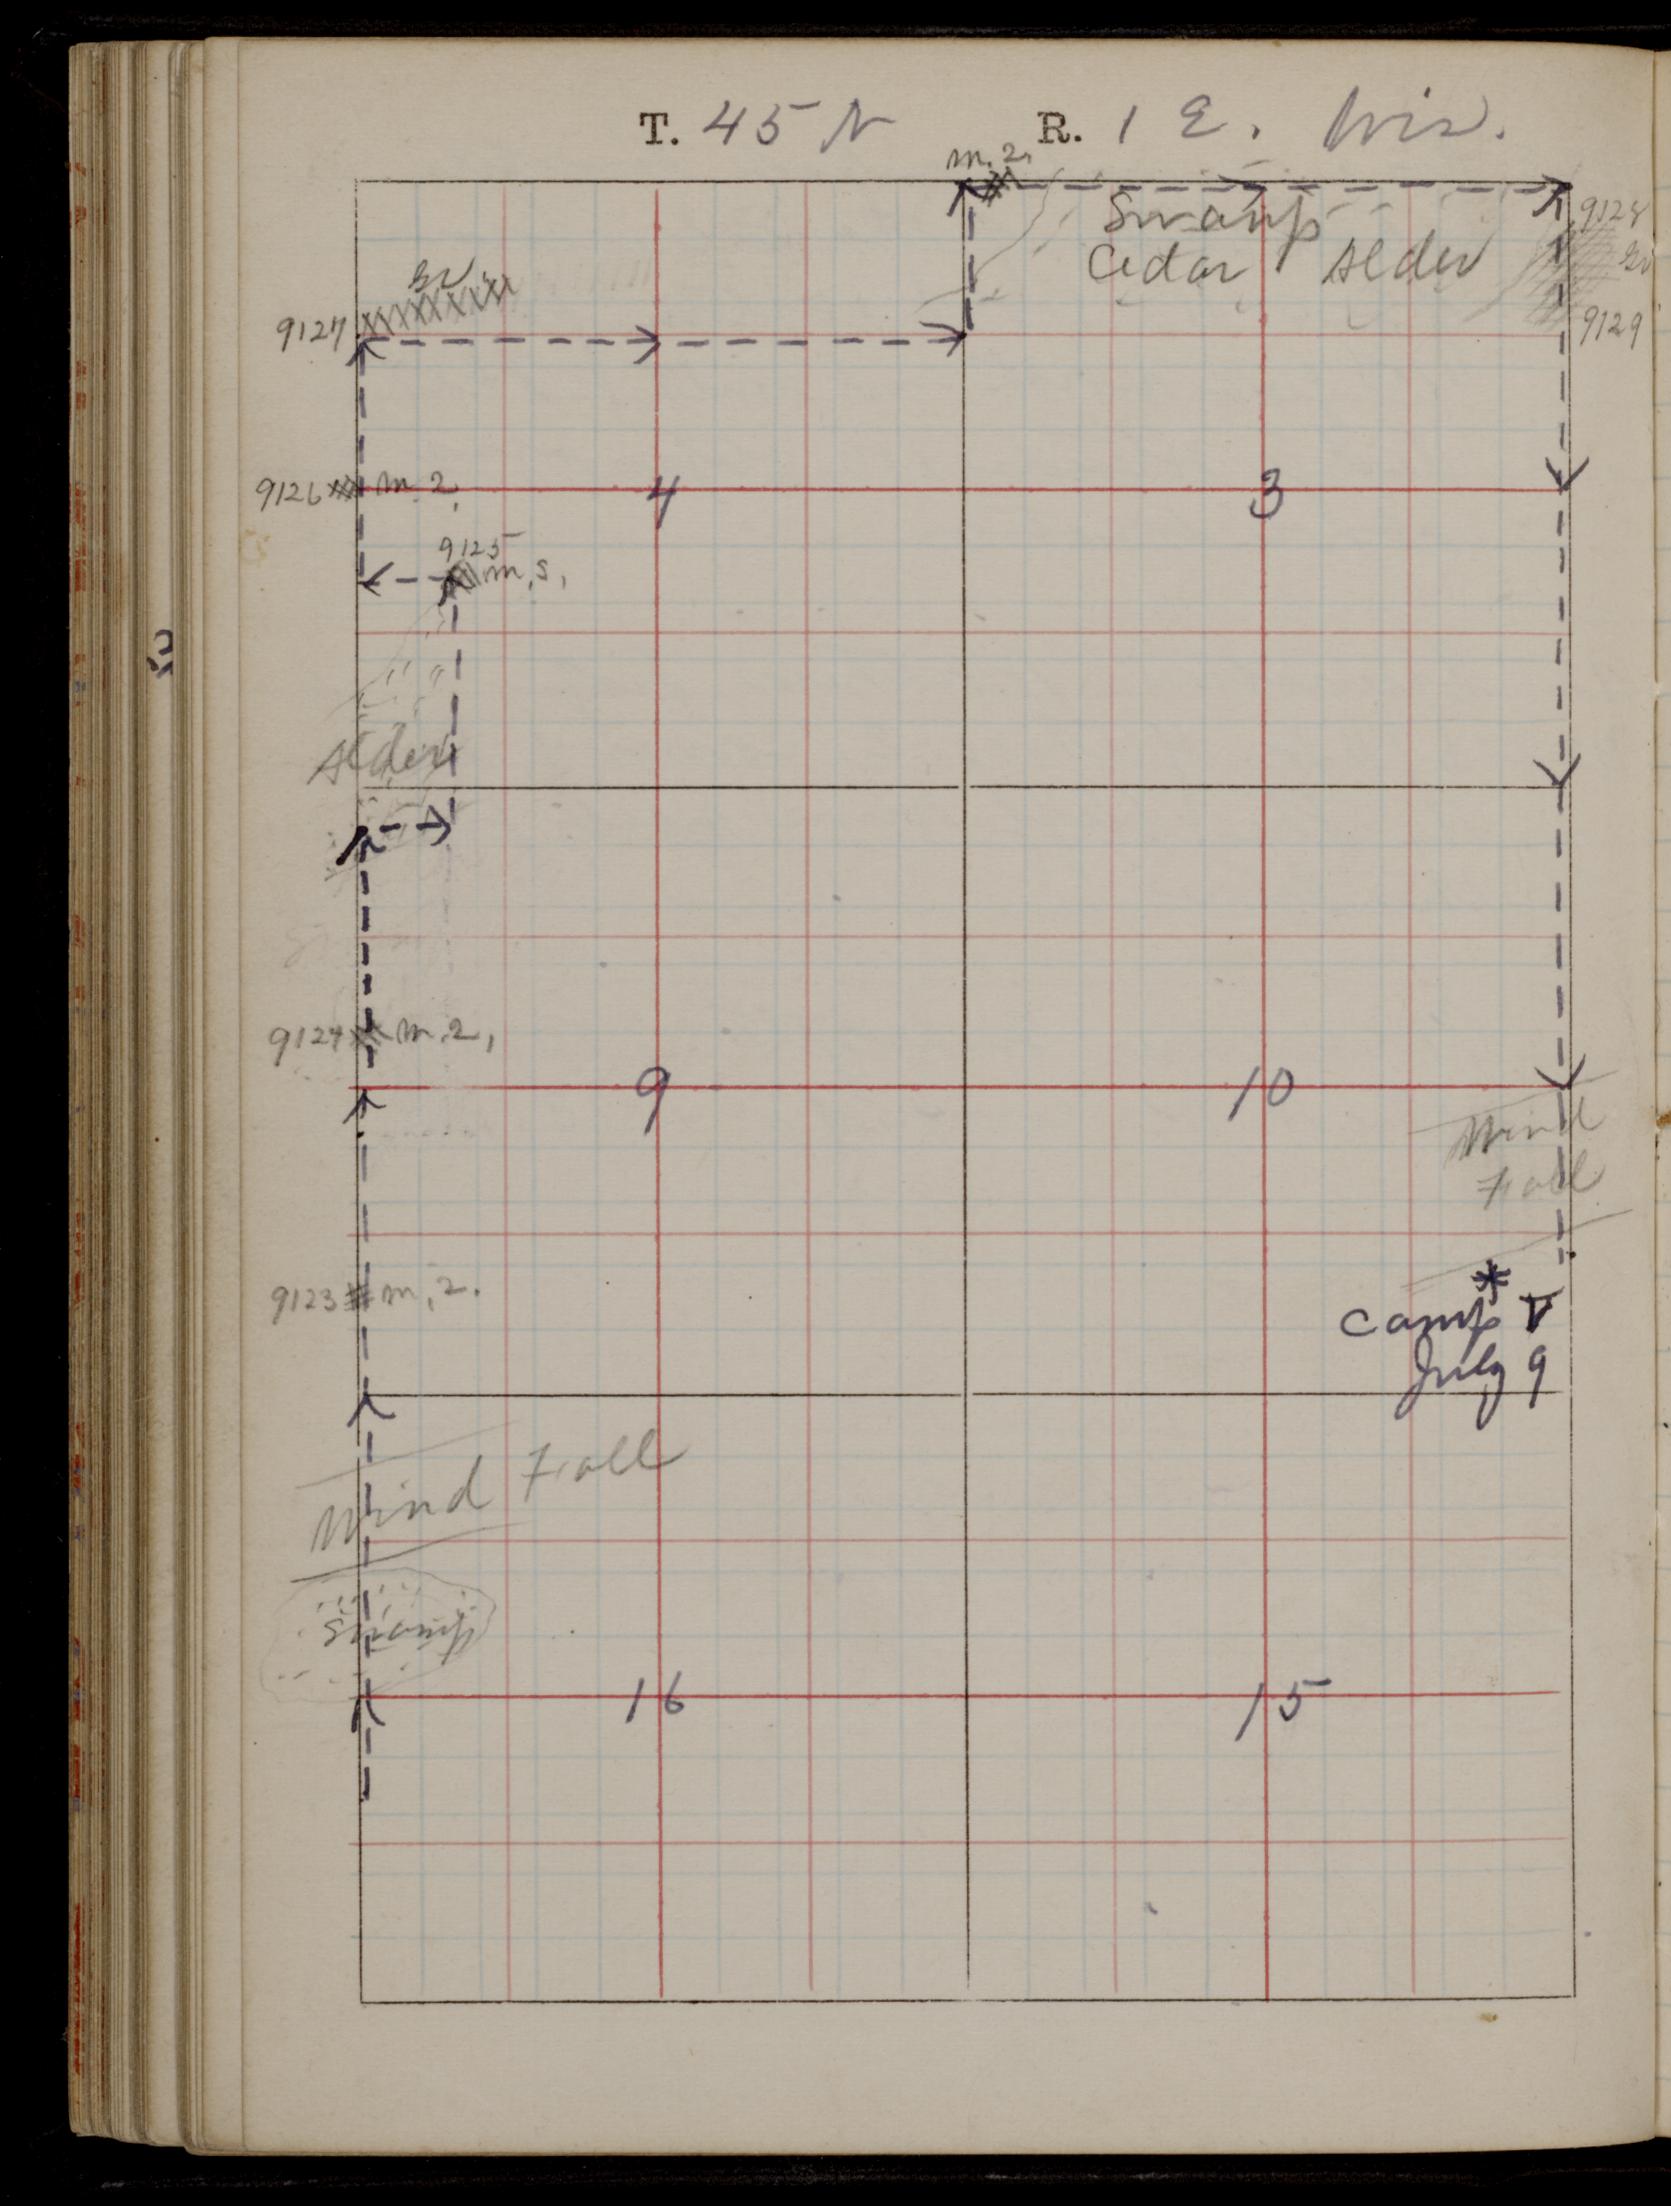 T. 45 N R. 1 E. Wis.
m. 2.
Swamp
Cedar Alder
9128
Gr
9129
Gr
9127
9126 m. 2.
4
3
9125
m. s.
Alder
9124 m. 2.
9
10
Wind
Fall
9123 m. 2.
Camp
July 9
Wind Fall
Swamp
16
15